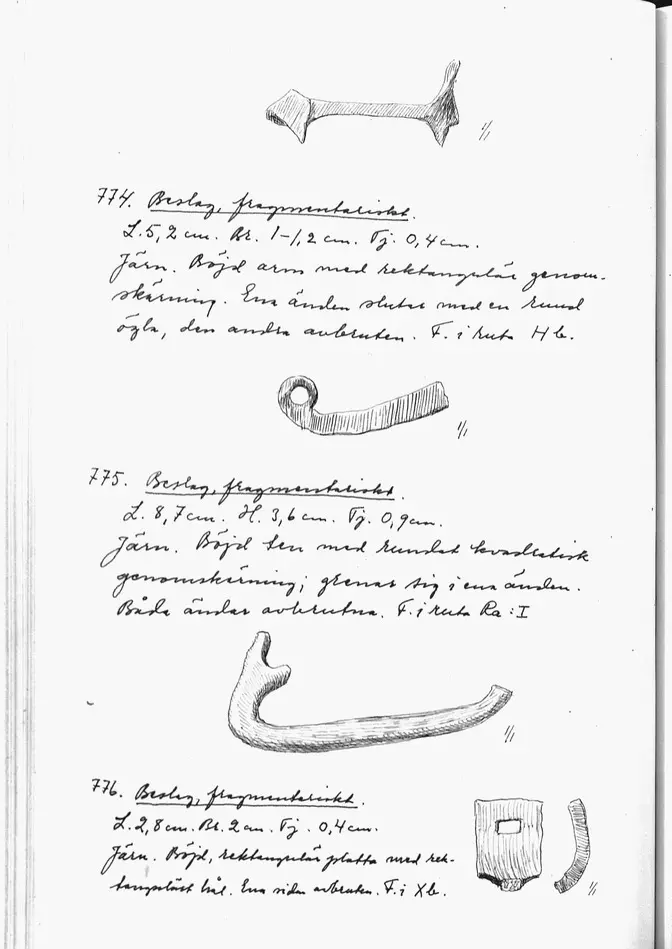 1/1
774. Beslag, fragmentariskt.
L. 5,2 cm. Br. 1-1,2 cm. Tj. 0,4 cm.
Järn. Böjd arm med rektangulär genom-
skärning. Ena änden slutar med en rund
ögla, den andra avbruten. F. i ruta H b.
1/1
775. Beslag, fragmentariskt.
L. 8,7 cm. H. 3,6 cm. Tj. 0,9 cm.
Järn. Böjd ten med rundat kvadratisk
genomskärning; grenar sig i ena änden.
Båda ändar avbrutna. F. i ruta Ra:I
1/1
776. Beslag, fragmentariskt.
L. 2,8 cm. Br. 2 cm. Tj. 0,4 cm.
Järn. Böjd, rektangulär platta med rek-
tangulärt hål. Ena sidan avbruten. F. i X b.
1/1